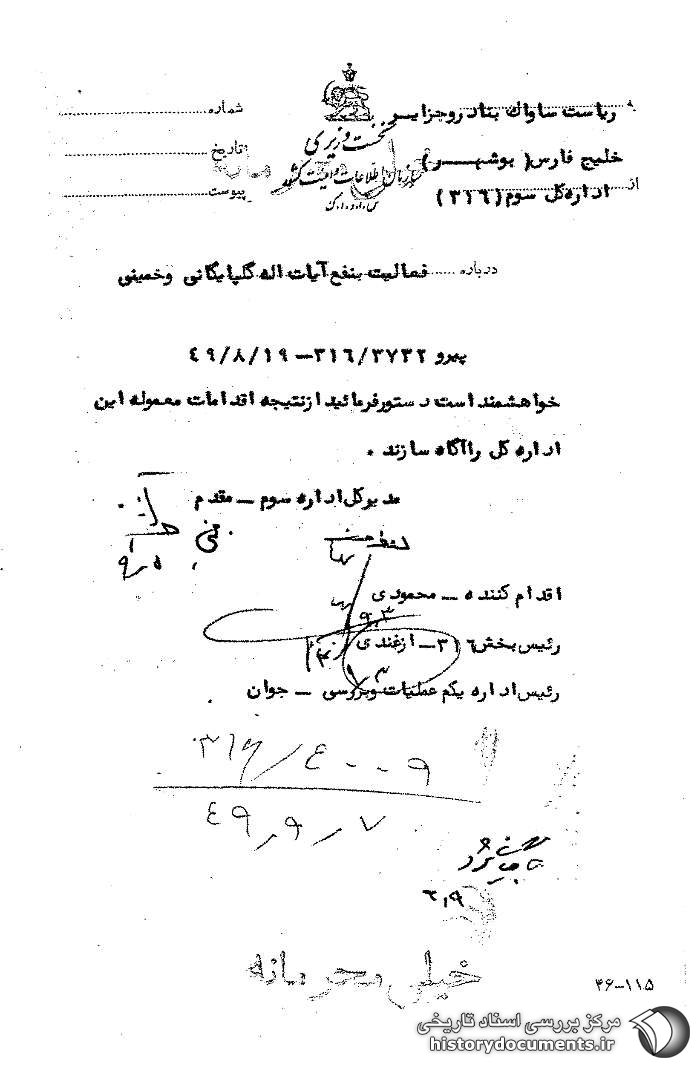 ریاست ساواک بنادر و جزایر
خلیج فارس (بوشهر)
از اداره کل سوم (۳۱۶)
نخست وزیری
سازمان اطلاعات و امنیت کشور
س.ا.و.ا.ک
شماره
تاریخ
پیوست
درباره فعالیت بنفع آیات اله گلپایگانی و خمینی
پیرو ۳۱۶/۳۷۳۲ – ۴۹/۸/۱۹
خواهشمند است دستور فرمائید از نتیجه اقدامات معموله این
اداره کل را آگاه سازند .
مدیرکل اداره سوم – مقدم
اقدام کننده – محمودی
۹٫۳
رئیس بخش ۳۱۶ – ازغندی
رئیس اداره یکم عملیات و بررسی – جوان
۳۱۶/۴۰۰۹
۴۹٫۹٫۷
خیلی محرمانه
۴۶-۱۱۵
مرکز بررسی اسناد تاریخی
historydocuments.ir